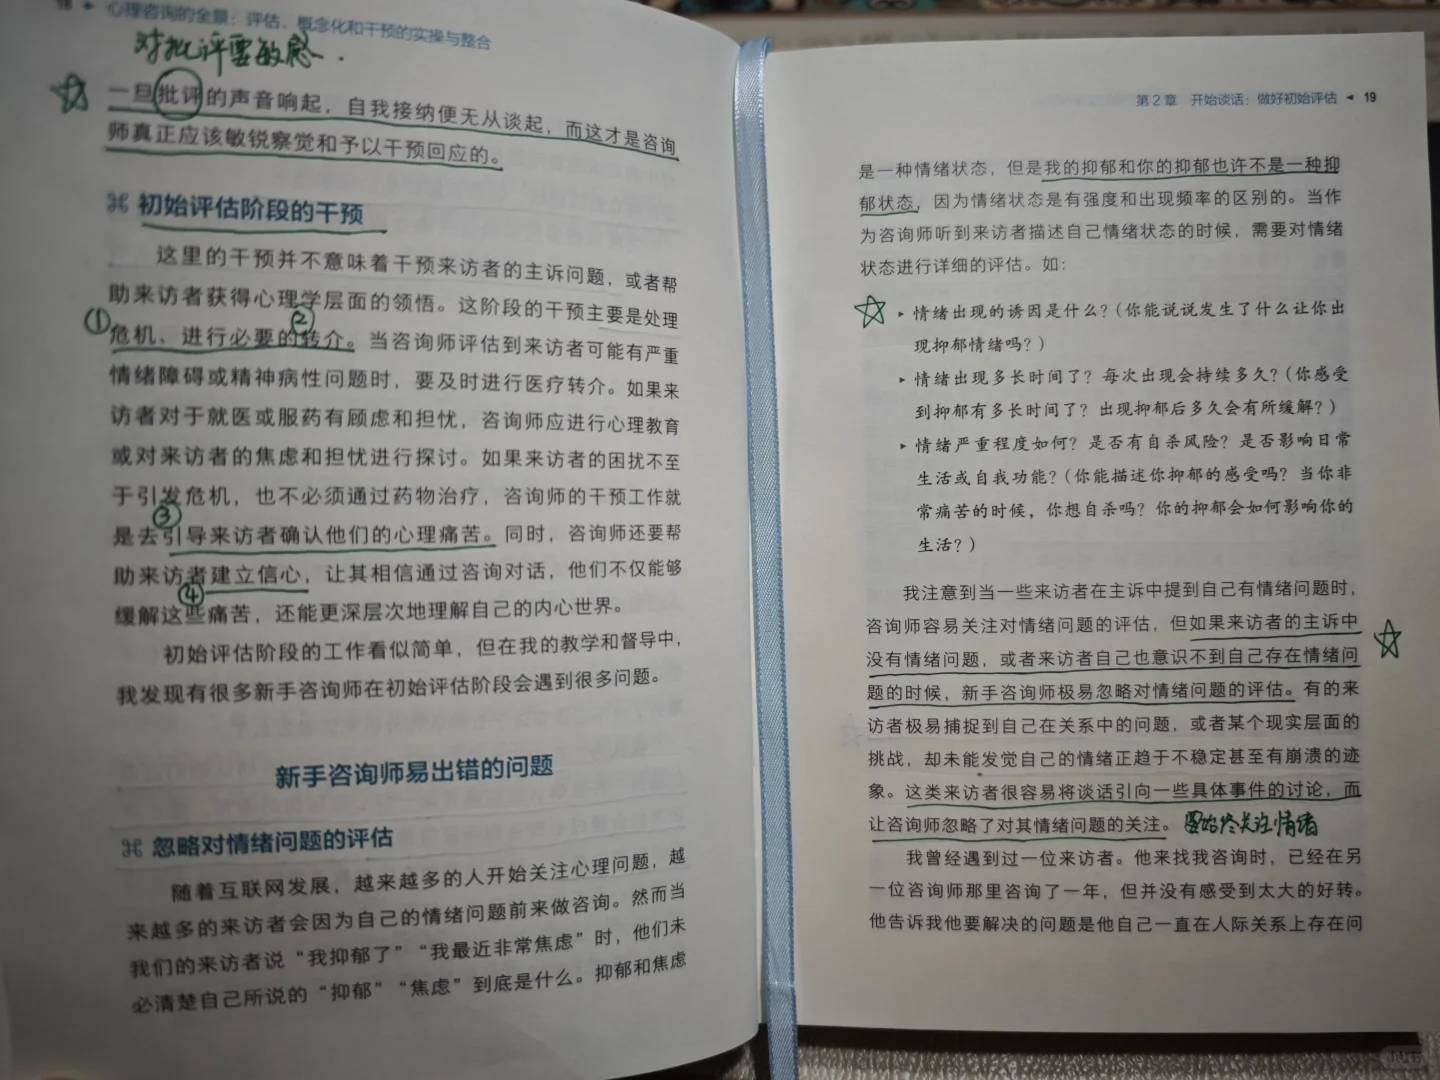 18 ▸ 心理咨询的全景：评估、概念化和干预的实操与整合
对批评要敏感.
一旦批评的声音响起，自我接纳便无从谈起，而这才是咨询
师真正应该敏锐察觉和予以干预回应的。
⌘ 初始评估阶段的干预
这里的干预并不意味着干预来访者的主诉问题，或者帮
助来访者获得心理学层面的领悟。这阶段的干预主要是处理
① ②
危机、进行必要的转介。当咨询师评估到来访者可能有严重
情绪障碍或精神病性问题时，要及时进行医疗转介。如果来
访者对于就医或服药有顾虑和担忧，咨询师应进行心理教育
或对来访者的焦虑和担忧进行探讨。如果来访者的困扰不至
于引发危机，也不必须通过药物治疗，咨询师的干预工作就
③
是去引导来访者确认他们的心理痛苦。同时，咨询师还要帮
助来访者建立信心，让其相信通过咨询对话，他们不仅能够
④
缓解这些痛苦，还能更深层次地理解自己的内心世界。
初始评估阶段的工作看似简单，但在我的教学和督导中，
我发现有很多新手咨询师在初始评估阶段会遇到很多问题。
新手咨询师易出错的问题
⌘ 忽略对情绪问题的评估
随着互联网发展，越来越多的人开始关注心理问题，越
来越多的来访者会因为自己的情绪问题前来做咨询。然而当
我们的来访者说“我抑郁了”“我最近非常焦虑”时，他们未
必清楚自己所说的“抑郁”“焦虑”到底是什么。抑郁和焦虑
第2章 开始谈话：做好初始评估 ◂ 19
是一种情绪状态，但是我的抑郁和你的抑郁也许不是一种抑
郁状态，因为情绪状态是有强度和出现频率的区别的。当作
为咨询师听到来访者描述自己情绪状态的时候，需要对情绪
状态进行详细的评估。如：
▸ 情绪出现的诱因是什么？（你能说说发生了什么让你出
现抑郁情绪吗？）
▸ 情绪出现多长时间了？每次出现会持续多久？（你感受
到抑郁有多长时间了？出现抑郁后多久会有所缓解？）
▸ 情绪严重程度如何？是否有自杀风险？是否影响日常
生活或自我功能？（你能描述你抑郁的感受吗？当你非
常痛苦的时候，你想自杀吗？你的抑郁会如何影响你的
生活？）
我注意到当一些来访者在主诉中提到自己有情绪问题时，
咨询师容易关注对情绪问题的评估，但如果来访者的主诉中
没有情绪问题，或者来访者自己也意识不到自己存在情绪问
题的时候，新手咨询师极易忽略对情绪问题的评估。有的来
访者极易捕捉到自己在关系中的问题，或者某个现实层面的
挑战，却未能发觉自己的情绪正趋于不稳定甚至有崩溃的迹
象。这类来访者很容易将谈话引向一些具体事件的讨论，而
让咨询师忽略了对其情绪问题的关注。要始终关注情绪
我曾经遇到过一位来访者。他来找我咨询时，已经在另
一位咨询师那里咨询了一年，但并没有感受到太大的好转。
他告诉我他要解决的问题是他自己一直在人际关系上存在问